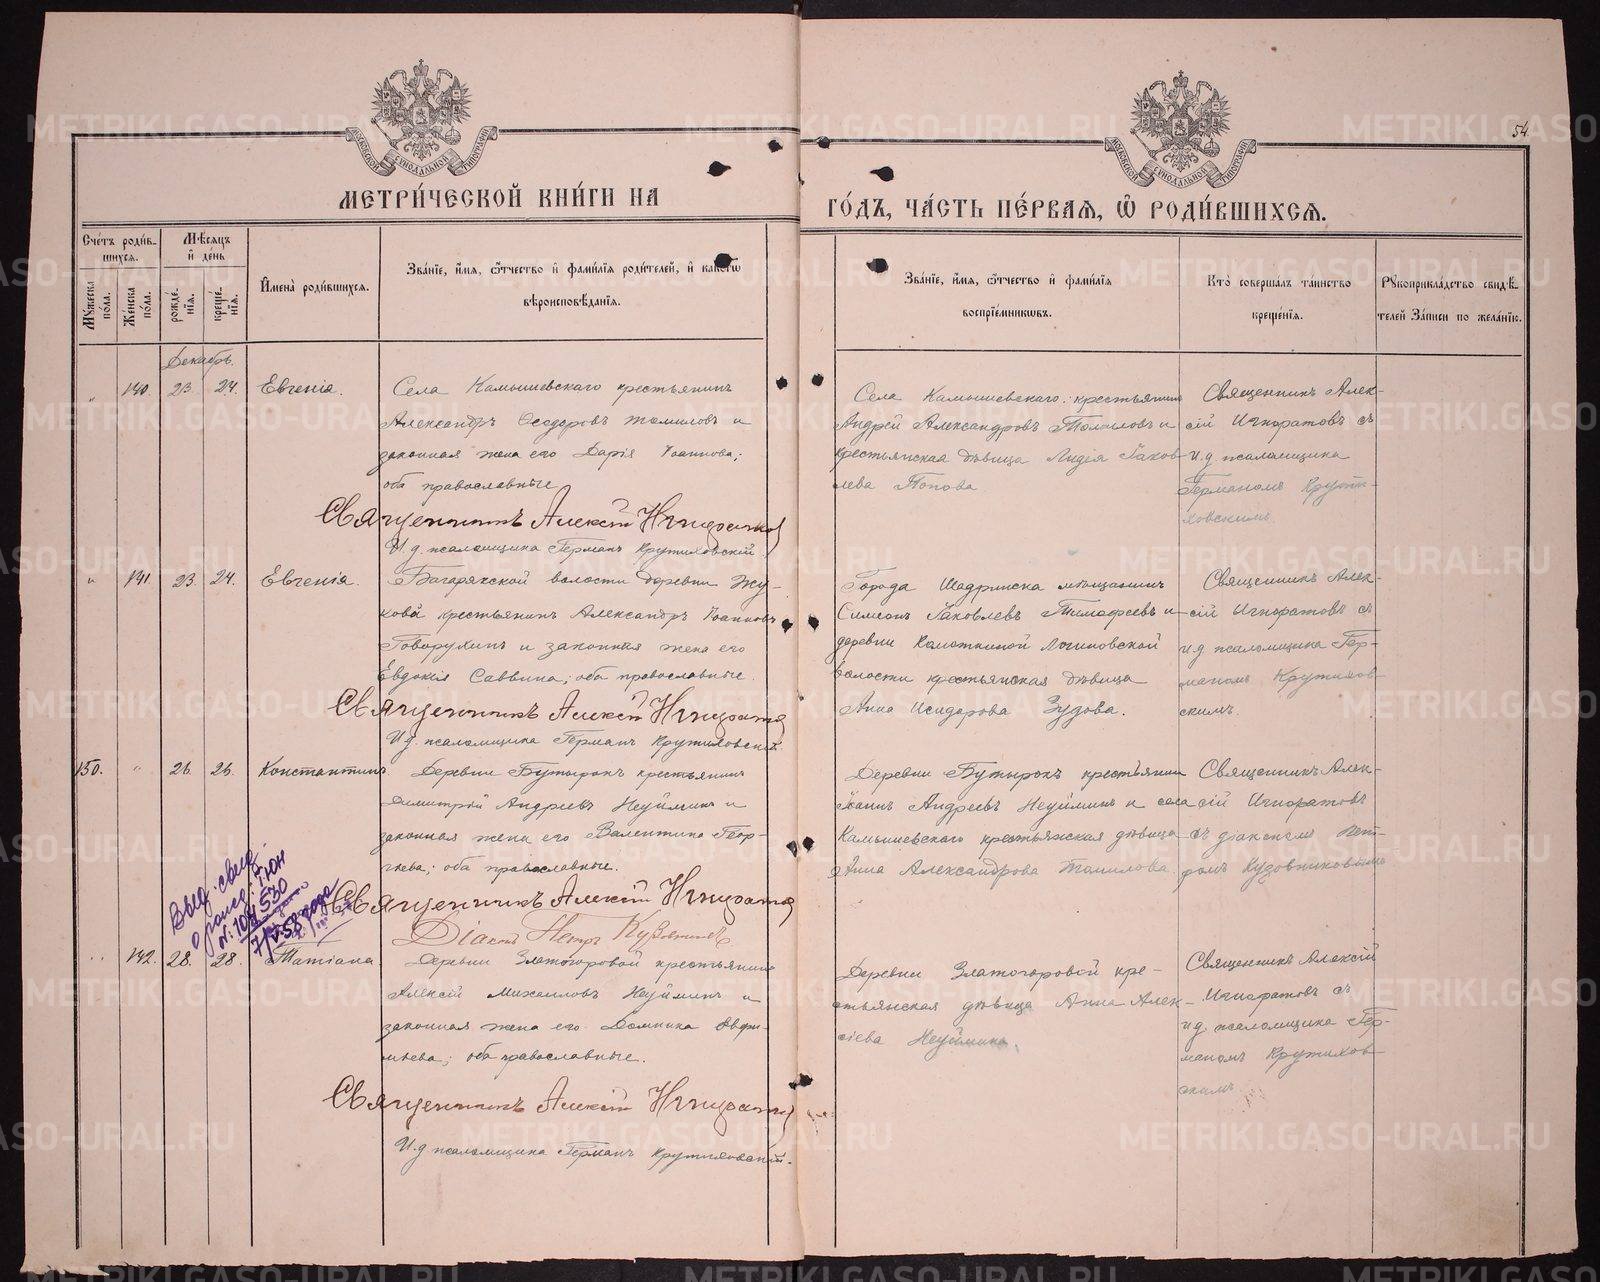 54.
МОСКОВСКОЙ СѴНОДАЛЬНОЙ ТИПОГРАФІИ
МОСКОВСКОЙ СѴНОДАЛЬНОЙ ТИПОГРАФІИ
МЕТРИ́ЧЕСКОЙ КНИ́ГИ НА
ГО́ДЪ, ЧА́СТЬ ПЕ́РВАѦ, Ѽ РОДИ́ВШИХСѦ.
Сче́тъ роди́в-
шихсѧ.
Мꙋжеска по́ла.
Же́нска по́ла.
Мѣ́сѧцъ
и҆ де́нь
рожде́нїѧ.
креще́нїѧ.
И҆мена̀ роди́вшихсѧ.
Зва́нїе, и҆́мѧ, ѻ҆́тчество и҆ фами́лїѧ роди́телей, и҆ како́гѡ
вѣроисповѣ́данїѧ.
Зва́нїе, и҆́мѧ, ѻ҆́тчество и҆ фами́лїѧ
воспрїе́мникѡвъ.
Кто̀ соверша́лъ та́инство
креще́нїѧ.
Рꙋкоприкла́дство свидѣ́-
телей за́писи по жела́нїю.
Декабрь.
" 140. 23 24. Евгенія.
Села Камышевскаго крестьянинъ
Александръ Ѳеодоровъ Томиловъ и
законная жена его Дарія Іоаннова;
оба православные
Священникъ Алексій Игноратов
И.д. псаломщика Германъ Крутиховскій.
Села Камышевскаго крестьянинъ
Андрей Александровъ Томиловъ и
крестьянская дѣвица Лидія Іаков-
лева Попова
Священникъ Алек-
сій Игноратовъ съ
и.д. псаломщика
Германомъ Крути-
ховскимъ
" 141. 23 24. Евгенія.
Багарякской волости деревни Жу-
ковой крестьянинъ Александръ Іоанновъ
Говорухинъ и законная жена его
Евдокія Саввина; оба православные.
Священникъ Алексій Игноратов
И.д. псаломщика Германъ Крутиховскій.
Города Шадринска мѣщанинъ
Симеонъ Іаковлевъ Тимофеевъ и
деревни Логиновской
волости крестьянская дѣвица
Анна Исидорова Зудова.
Священникъ Алек-
сій Игноратовъ съ
и.д. псаломщика Гер-
маномъ Крутихов-
скимъ.
150. " 26. 26. Константинъ
Деревни Бутырокъ крестьянинъ
Димитрій Андреевъ Неуйминъ и
законная жена его Валентина Геор-
гіева; оба православные.
Священникъ Алексій Игноратов
Діаконъ Петръ Кузовниковъ
Деревни Бутырокъ крестьянинъ
Іоаннъ Андреевъ Неуйминъ и села
Камышевскаго крестьянская дѣвица
Анна Александрова Томилова.
Священникъ Алек-
сій Игноратовъ
съ діакономъ Пет-
ромъ Кузовниковымъ
Выд. свид.
о рожд.
530
58 года
" 142. 28. 28. Татіана
Деревни Златогоровой крестьянинъ
Алексій Михаиловъ Неуйминъ и
законная жена его Домника
оба православные.
Священникъ Алексій Игноратов
И.д. псаломщика Германъ Крутиховскій.
Деревни Златогоровой кре-
стьянская дѣвица Анна Алек-
сіева Неуймина.
Священникъ Алексій
Игноратовъ съ
и.д. псаломщика Гер-
маномъ Крутихов-
скимъ
METRIKI.GASO-URAL.RU